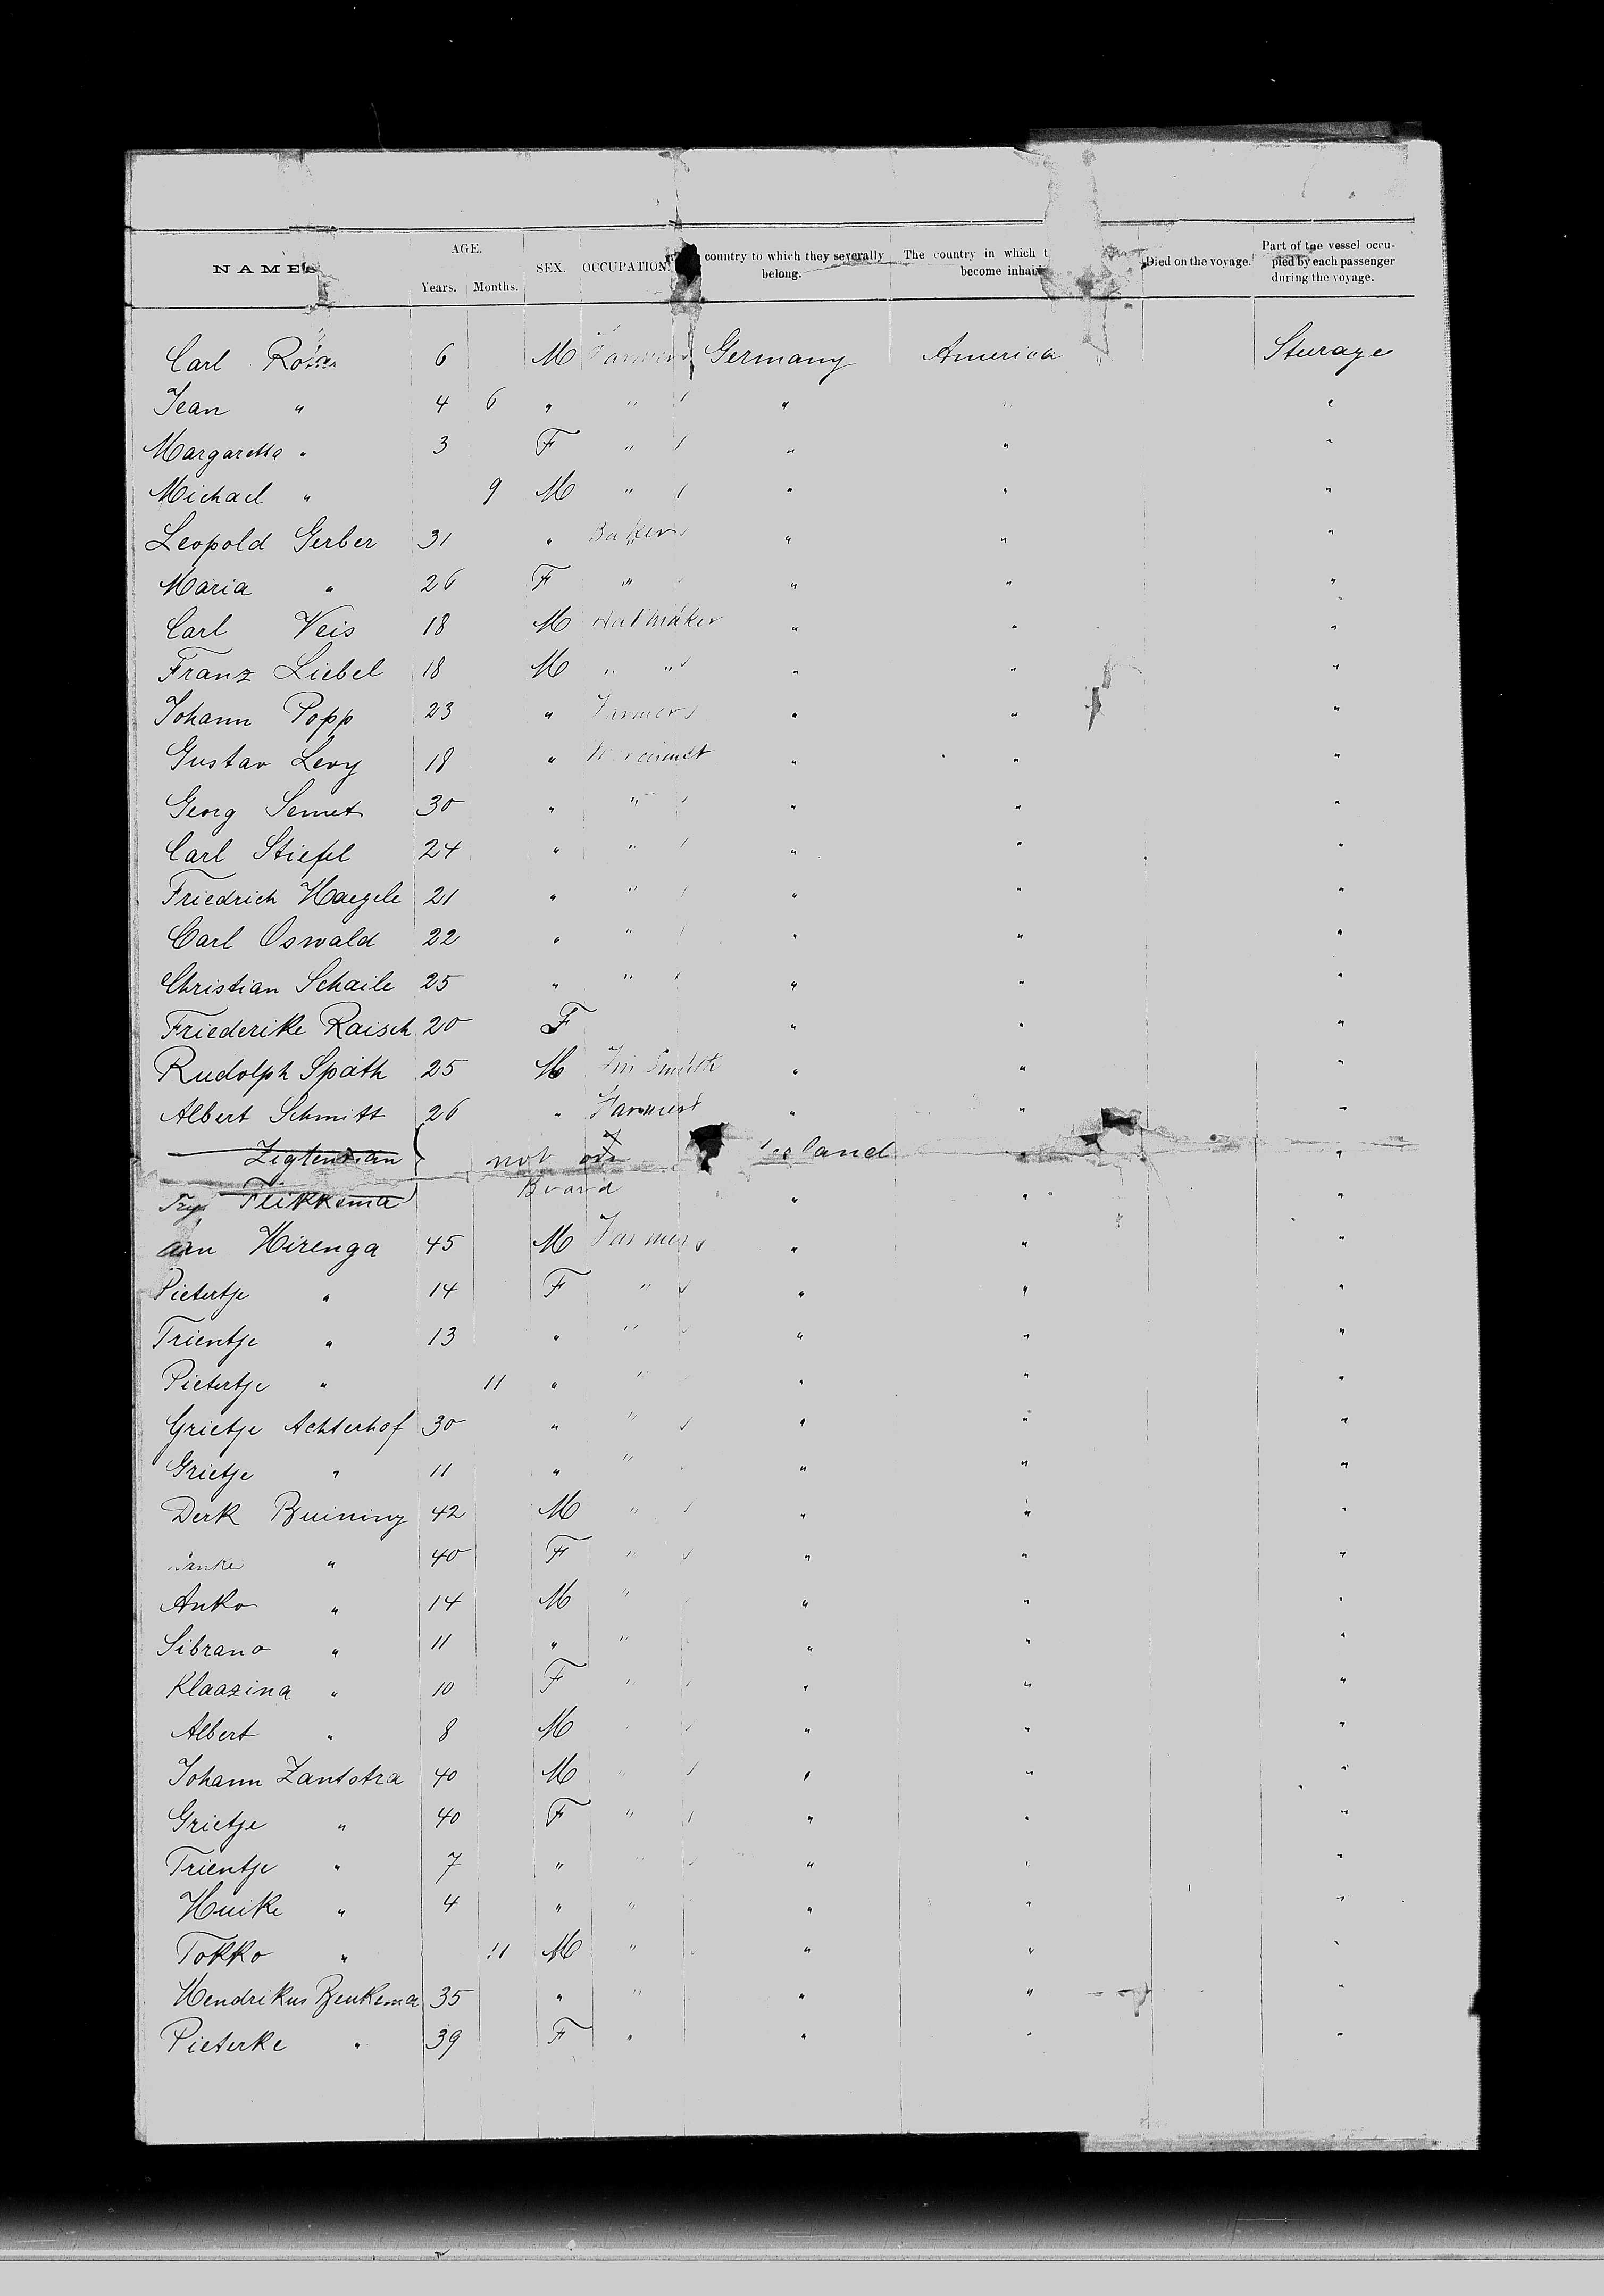 NAMES
AGE.
Years. Months.
SEX. OCCUPATION.
country to which they severally belong.
The country in which t
become inhabi
Died on the voyage.
Part of the vessel occu-
pied by each passenger
during the voyage.
Carl 6 M Farmer Germany America Sturage
Jean " 4 6 " " " " "
Margaretha " 3 F " " " "
Michael " 9 M " " " "
Leopold Gerber 31 " Baker " " "
Maria " 26 F " " " "
Carl Veis 18 M Hatmaker " " "
Franz Liebel 18 M " " " " "
Johann Popp 23 " Farmer " " "
Gustav Levy 18 " " " "
Georg Semet 30 " " " " "
Carl Stiefel 24 " " " " "
Friedrich Haegele 21 " " " " "
Carl Oswald 22 " " " " "
Christian Schaile 25 " " " " "
Friederike Raisch 20 F " " "
Rudolph Späth 25 M Smith " " "
Albert Schmitt 26 " Farmer " " "
not on erland " "
Flikkema Board " " "
Hirenga 45 M Farmer " " "
Pietertje " 14 F " " " "
Trientje " 13 " " " " "
Pietertje " 11 " " " " "
Grietje Achterhof 30 " " " " "
Grietje " 11 " " " " "
Derk Buining 42 M " " " "
" 40 F " " " "
Anko " 14 M " " " "
Sibrano " 11 " " " " "
Klaazina " 10 F " " " "
Albert " 8 M " " " "
Johann Zantstra 40 M " " " "
Grietje " 40 F " " " "
Trientje " 7 " " " " "
Huike " 4 " " " " "
Tokko " 11 M " " " "
Hendrikus Beukema 35 " " " " "
Pieterke " 39 F " " " "